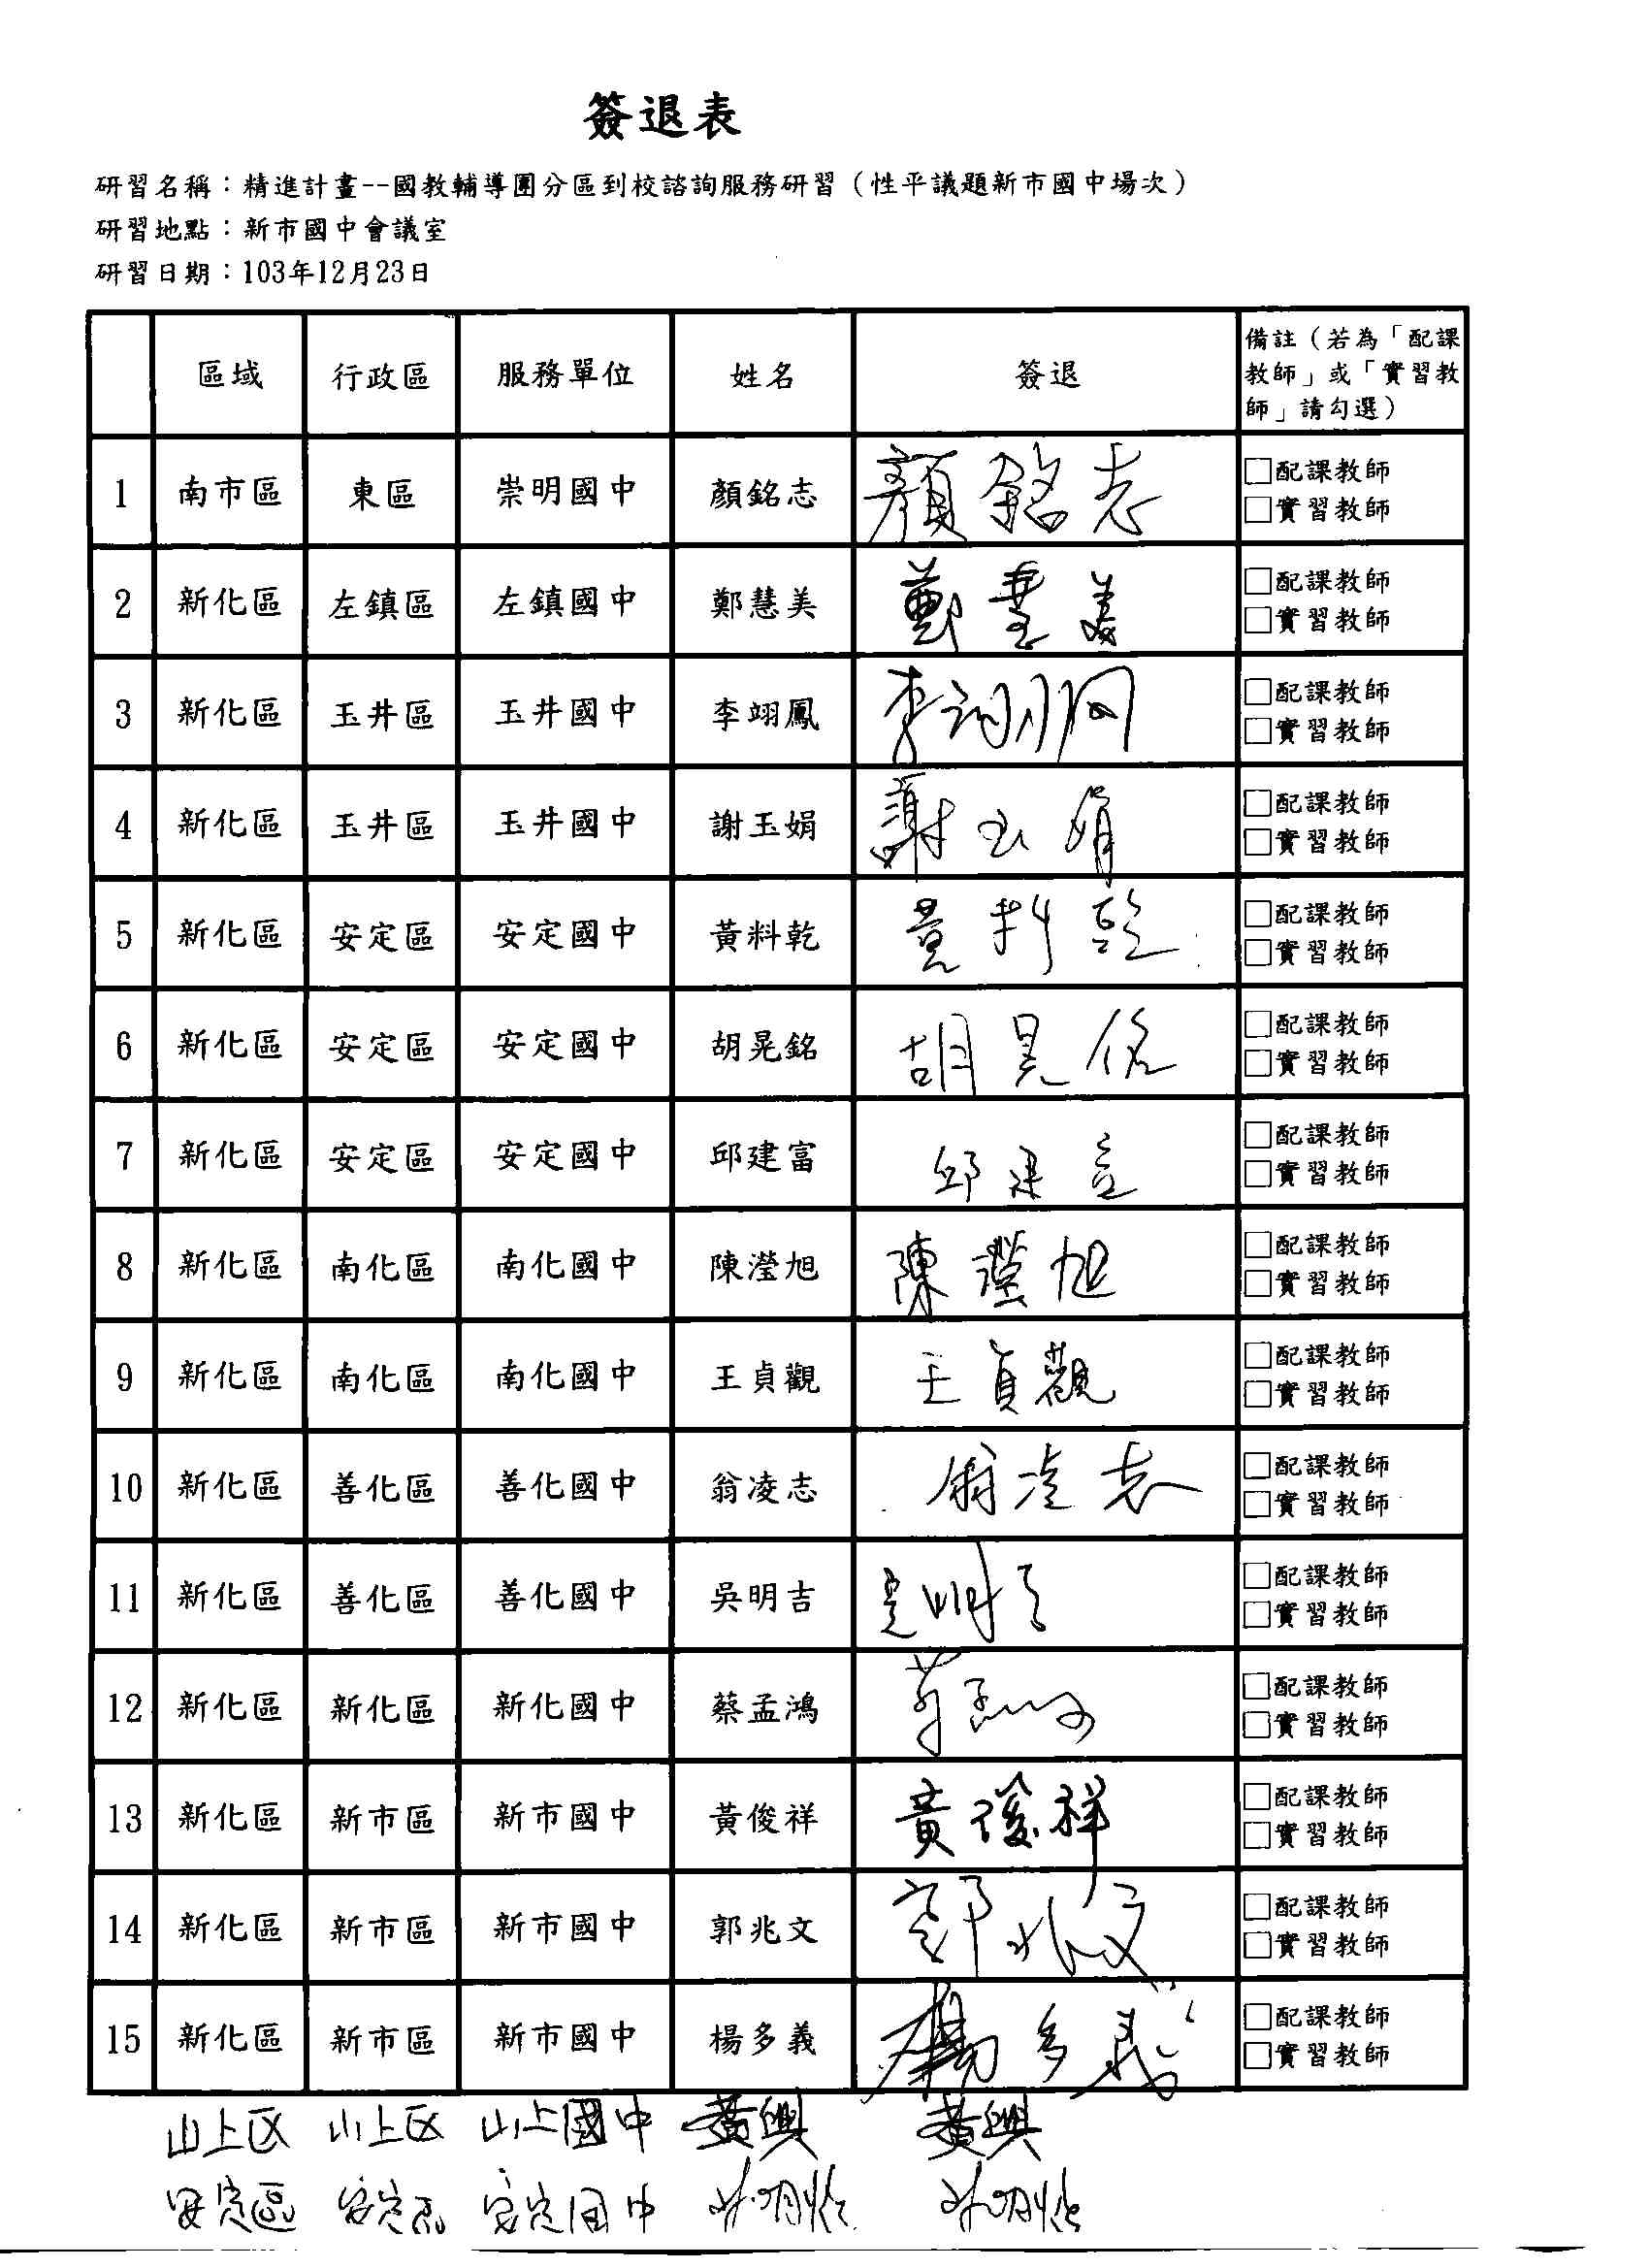 簽退表
研習名稱：精進計畫--國教輔導團分區到校諮詢服務研習（性平議題新市國中場次）
研習地點：新市國中會議室
研習日期：103年12月23日
區域 行政區 服務單位 姓名 簽退 備註（若為「配課教師」或「實習教師」請勾選）
1 南市區 東區 崇明國中 顏銘志 顏銘志 □配課教師 □實習教師
2 新化區 左鎮區 左鎮國中 鄭慧美 鄭慧美 □配課教師 □實習教師
3 新化區 玉井區 玉井國中 李翊鳳 李翊鳳 □配課教師 □實習教師
4 新化區 玉井區 玉井國中 謝玉娟 謝玉娟 □配課教師 □實習教師
5 新化區 安定區 安定國中 黃料乾 黃料乾 □配課教師 □實習教師
6 新化區 安定區 安定國中 胡晃銘 胡晃銘 □配課教師 □實習教師
7 新化區 安定區 安定國中 邱建富 邱建富 □配課教師 □實習教師
8 新化區 南化區 南化國中 陳瀅旭 陳瀅旭 □配課教師 □實習教師
9 新化區 南化區 南化國中 王貞觀 王貞觀 □配課教師 □實習教師
10 新化區 善化區 善化國中 翁凌志 翁凌志 □配課教師 □實習教師
11 新化區 善化區 善化國中 吳明吉 吳明吉 □配課教師 □實習教師
12 新化區 新化區 新化國中 蔡孟鴻 蔡孟鴻 □配課教師 □實習教師
13 新化區 新市區 新市國中 黃俊祥 黃俊祥 □配課教師 □實習教師
14 新化區 新市區 新市國中 郭兆文 郭兆文 □配課教師 □實習教師
15 新化區 新市區 新市國中 楊多義 楊多義 □配課教師 □實習教師
山上区 山上区 山上國中 黃興 黃興
安定區 安定區 安定国中